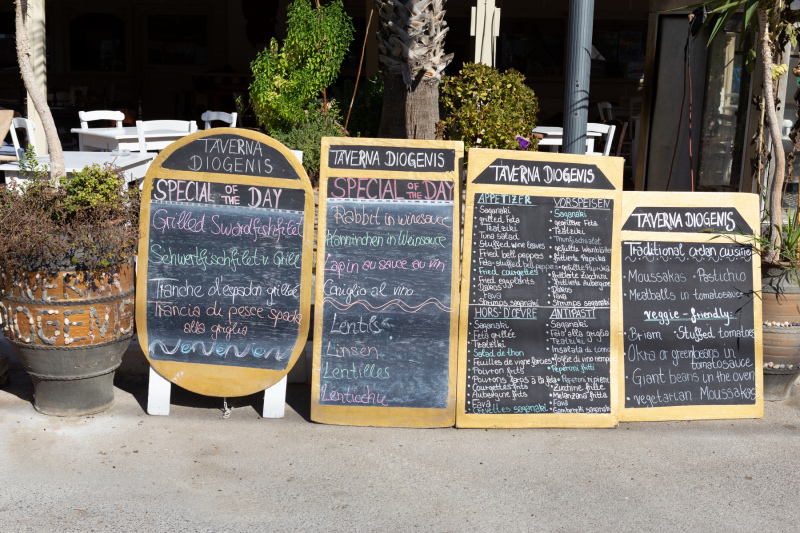 TAVERNA
DIOGENIS
SPECIAL OF THE DAY
Grilled Swordfishfilet
Schwertfischfilet v Grill
Tranche d'espadon grillée
Trancia di pesce spada
alla griglia
TAVERNA DIOGENIS
SPECIAL OF THE DAY
Rabbit in winesauce
Kaninnchen in Weinsauce
Lapin au sauce au vin
Coniglio al vino
Lentils
Linsen
Lentilles
Lenticchie
TAVERNA DIOGENIS
APPETIZER
Saganaki
grilled Feta
Tzatziki
Tuna salad
Stuffed wine leaves
Fried bell peppers
Feta-stuffed bell peppers
Fried courgettes
Fried eggplants
Sparos
Fava
Shrimps saganaki
VORSPEISEN
Saganaki
gegrillter Feta
Tzatziki
Thunfischsalat
gefüllte Weinblätter
Frittierte Paprika
gefüllte Paprika
Frittierte Zucchini
Frittierte Aubergine
Sparos
Fava
Shrimps saganaki
HORS-D'ŒVRE
Saganaki
Feta grillé
Tzatziki
Salade de thon
Feuilles de vigne farcies
Poivron frits
Poivrons farcis à la feta
Courgettes frits
Aubergine frits
Fava
Crevettes saganaki
ANTIPASTI
Saganaki
Feta alla griglia
Tzatziki
Insalata di tonno
Peperoni fritti
Peperoni ripieni
Zucchine fritti
Melanzana fritti
Fava
Gamberetti saganaki
TAVERNA DIOGENIS
Traditional cretan cuisine
Moussakas Pastichio
Meatballs in tomatosauce
veggie-friendly
Briam Stuffed tomatoes
Okra or greenbeans in
tomatosauce
Giant beans in the oven
vegetarian Moussakas
TAVERNA
DIOGENI